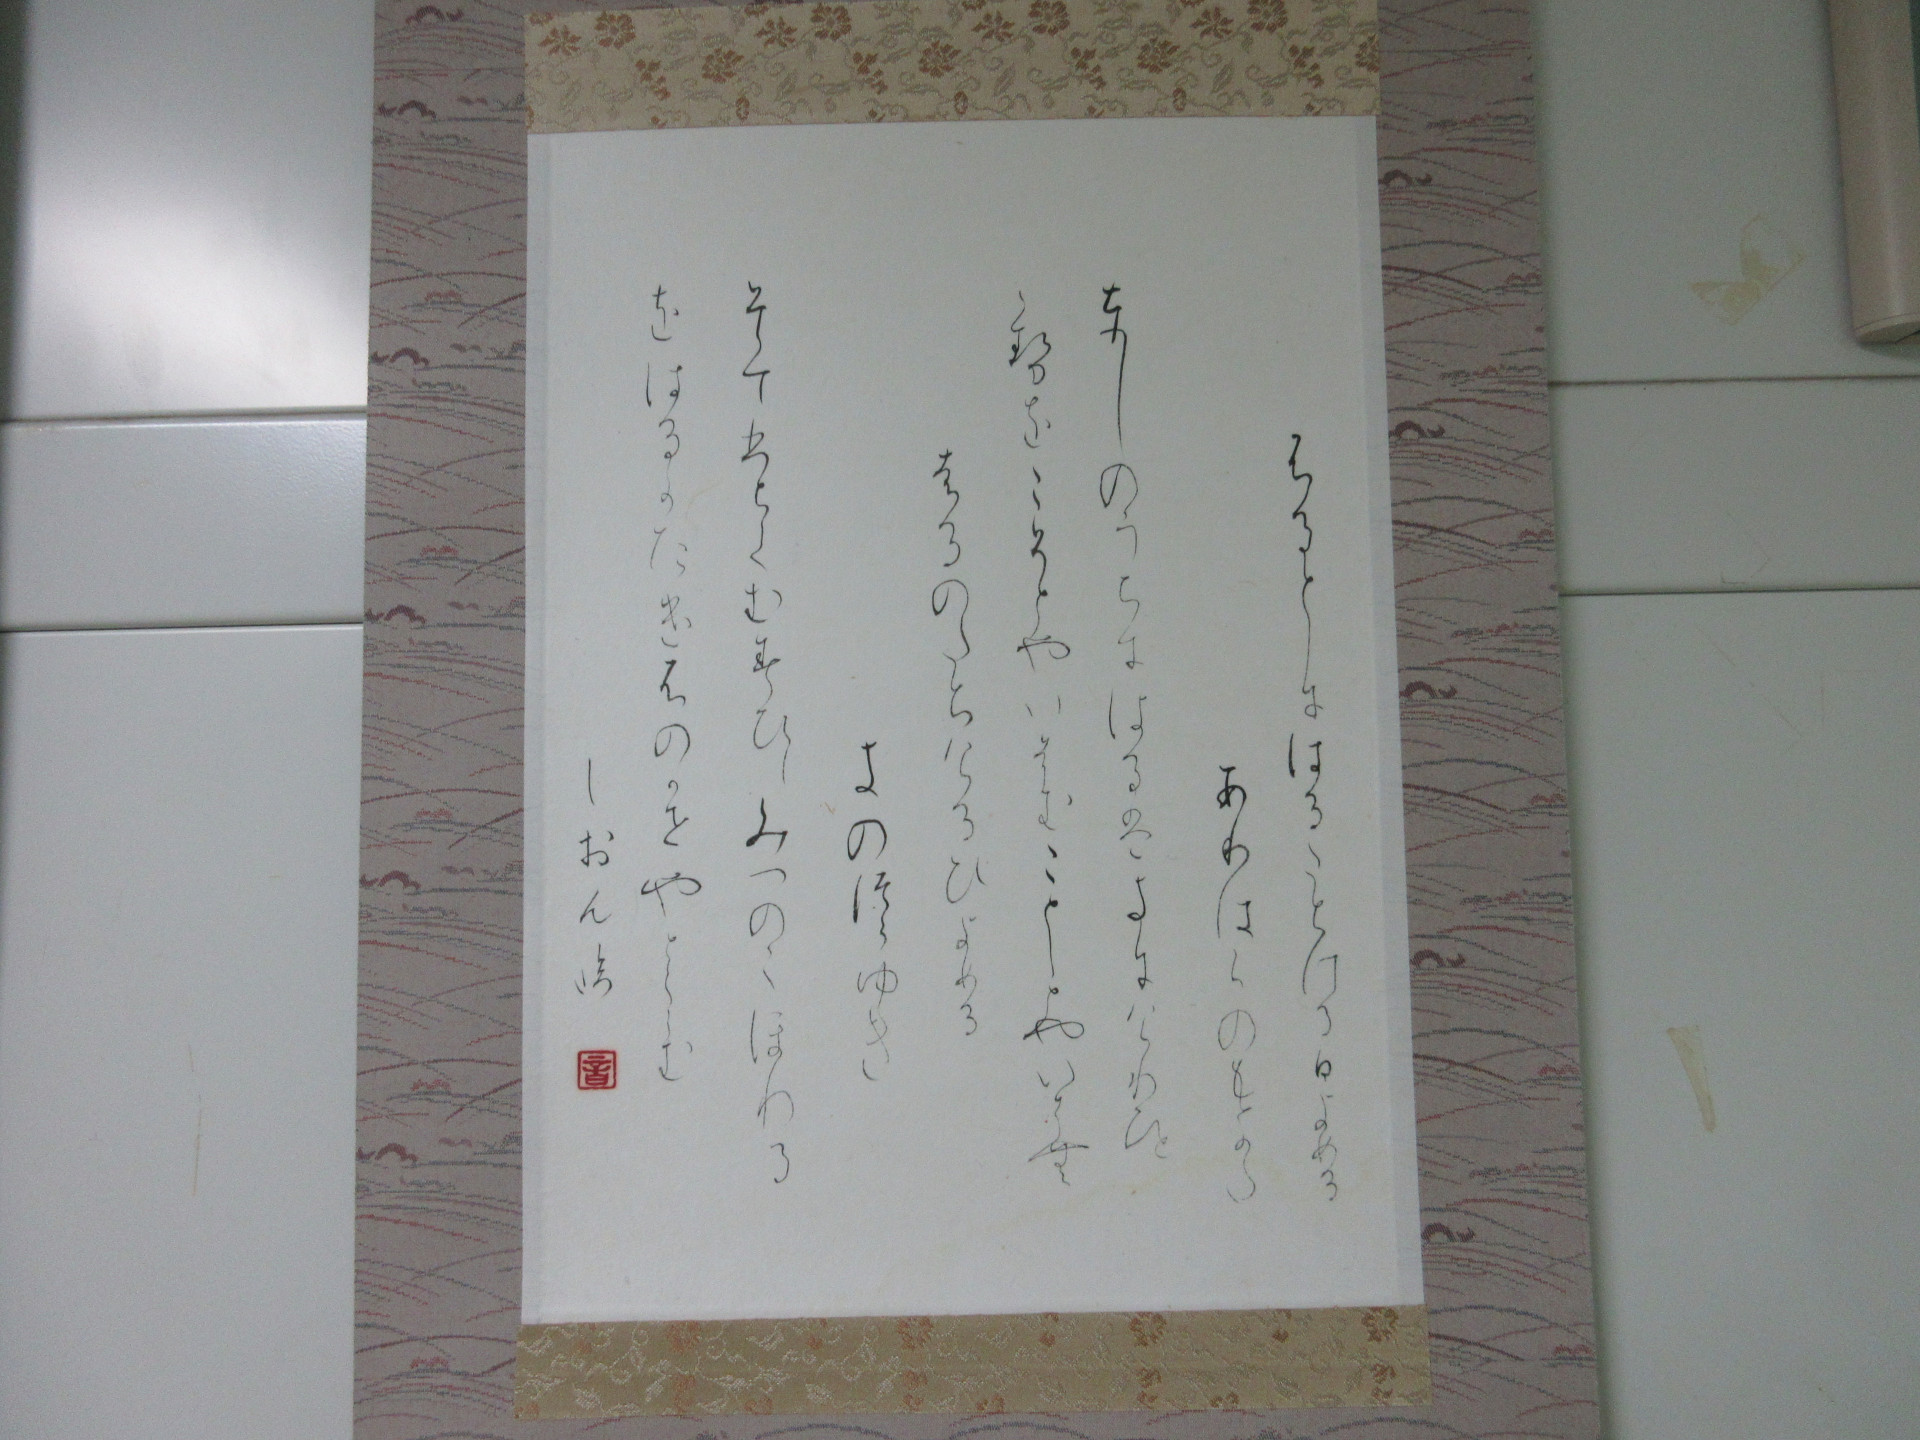 ふるとしにはるたちける日よめる
ありはらのもとかた
としのうちにはるはきにけりひと
ゝせをこそとやいはむことしとやいは無
はるのたちけるひよめる
きのつらゆき
そてひちてむすひしみつのこほれる
をはるたつけふのかせやとくらむ
しおん臨